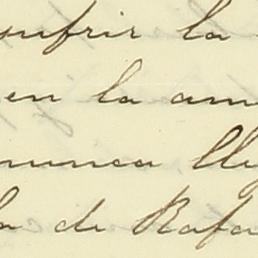 sufrir la
en la am
nunca lle
la de Rafa